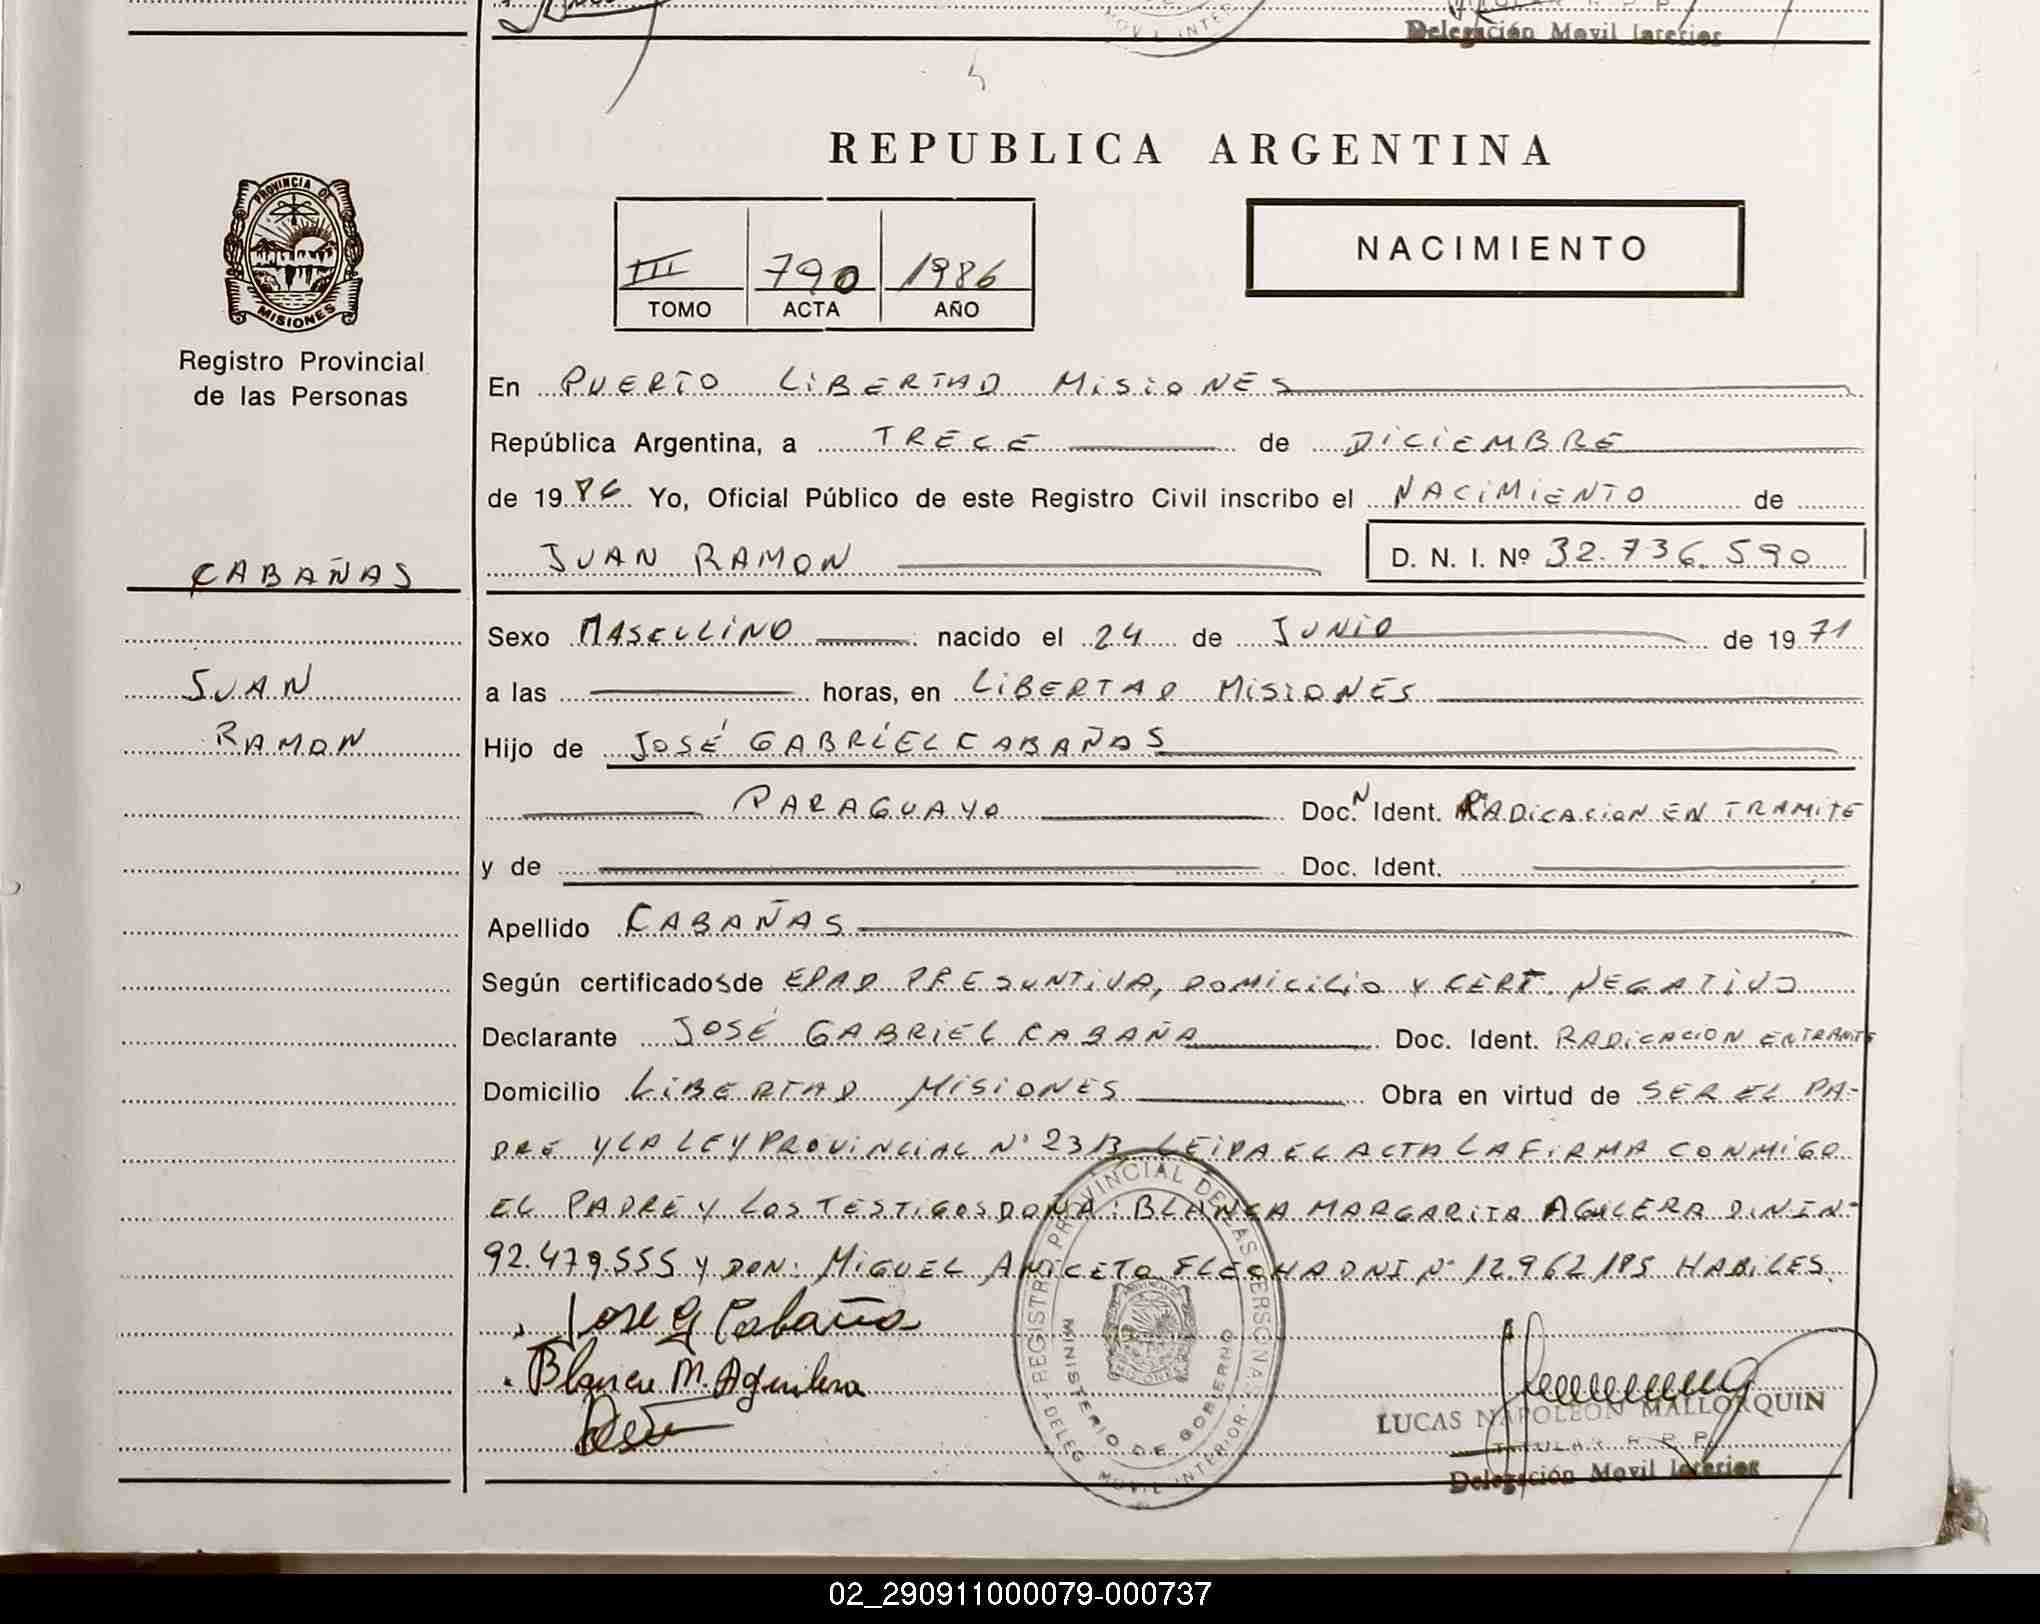 Delegación Movil Interior
REPUBLICA ARGENTINA
PROVINCIA DE
MISIONES
Registro Provincial
de las Personas
III 790 1986
TOMO ACTA AÑO
NACIMIENTO
En PUERTO LIBERTAD MISIONES
República Argentina, a TRECE de DICIEMBRE
de 1986 Yo, Oficial Público de este Registro Civil inscribo el NACIMIENTO de
JUAN RAMON D. N. I. Nº 32.736.590
CABAÑAS
JUAN
RAMON
Sexo MASCULINO nacido el 24 de JUNIO de 1971
a las horas, en LIBERTAD MISIONES
Hijo de JOSÉ GABRIEL CABAÑAS
PARAGUAYO Doc. Ident. RADICACION EN TRAMITE
y de Doc. Ident.
Apellido CABAÑAS
Según certificados de EDAD PRESUNTIVA, DOMICILIO Y CERT. NEGATIVO
Declarante JOSÉ GABRIEL CABAÑA Doc. Ident. RADICACION EN TRAMITE
Domicilio LIBERTAD MISIONES Obra en virtud de SER EL PA-
DRE Y LA LEY PROVINCIAL Nº 2313 LEIDA EL ACTA LA FIRMA CONMIGO
EL PADRE Y LOS TESTIGOS DOÑA: BLANCA MARGARITA AGUILERA D.N.I Nº
92.479.555 Y DON: MIGUEL ANICETO FLECHA DNI Nº 12.962.185 HABILES.
Jose G Cabaña
Blanca M. Aguilera
REGISTRO PROVINCIAL DE LAS PERSONAS
MINISTERIO DE GOBIERNO
DELEG. MOVIL INTERIOR
LUCAS NAPOLEON MALLORQUIN
TITULAR R. P. P.
Delegación Movil Interior
02_290911000079-000737